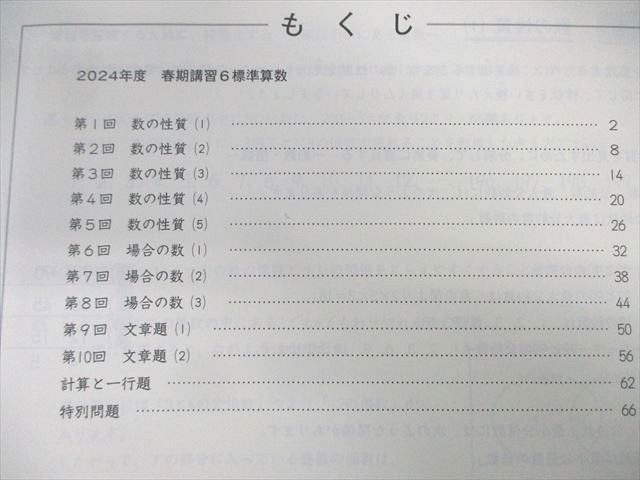 もくじ
2024年度 春期講習6標準算数
第1回 数の性質 (1) 2
第2回 数の性質 (2) 8
第3回 数の性質 (3) 14
第4回 数の性質 (4) 20
第5回 数の性質 (5) 26
第6回 場合の数 (1) 32
第7回 場合の数 (2) 38
第8回 場合の数 (3) 44
第9回 文章題 (1) 50
第10回 文章題 (2) 56
計算と一行題 62
特別問題 66